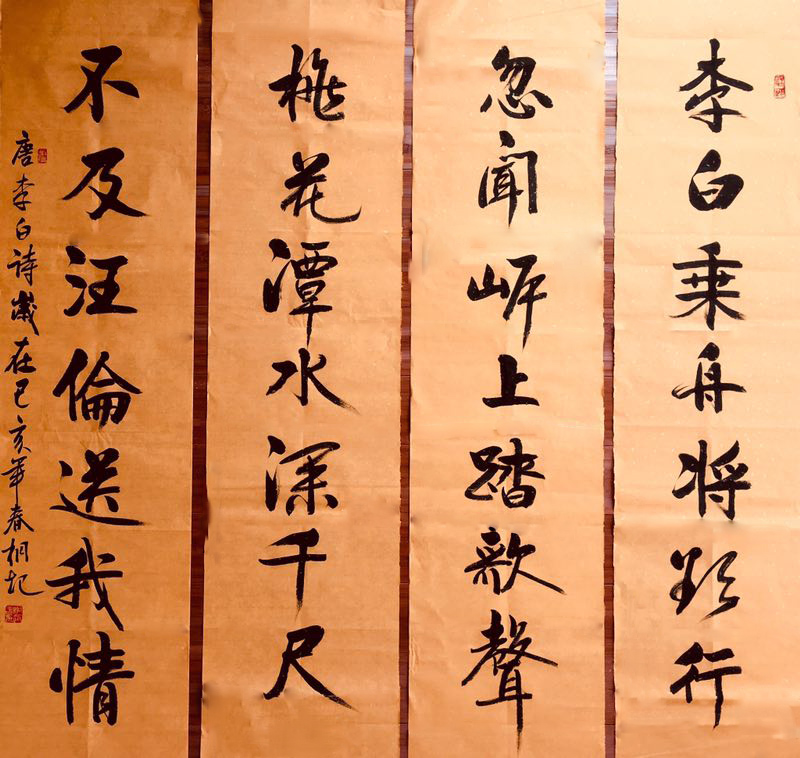 李白乘舟将欲行
忽闻岍上踏歌聲
桃花潭水深千尺
不及汪倫送我情
唐李白诗歲在己亥年春桐记